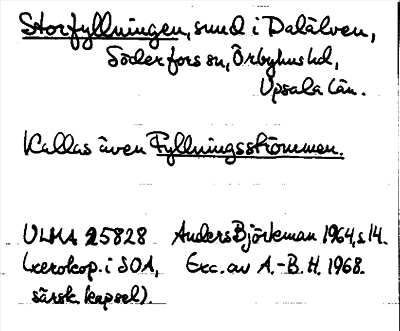 Storfyllningen, sund i Dalälven,
Söderfors sn, Örbyhus hd,
Upsala län.
Kallas även Fyllningsströmmen.
ULMA 25828 Anders Björkman 1964, s. 14.
(xerokop. i SOA, Exc. av A.-B. H. 1968.
särsk. kapsel).